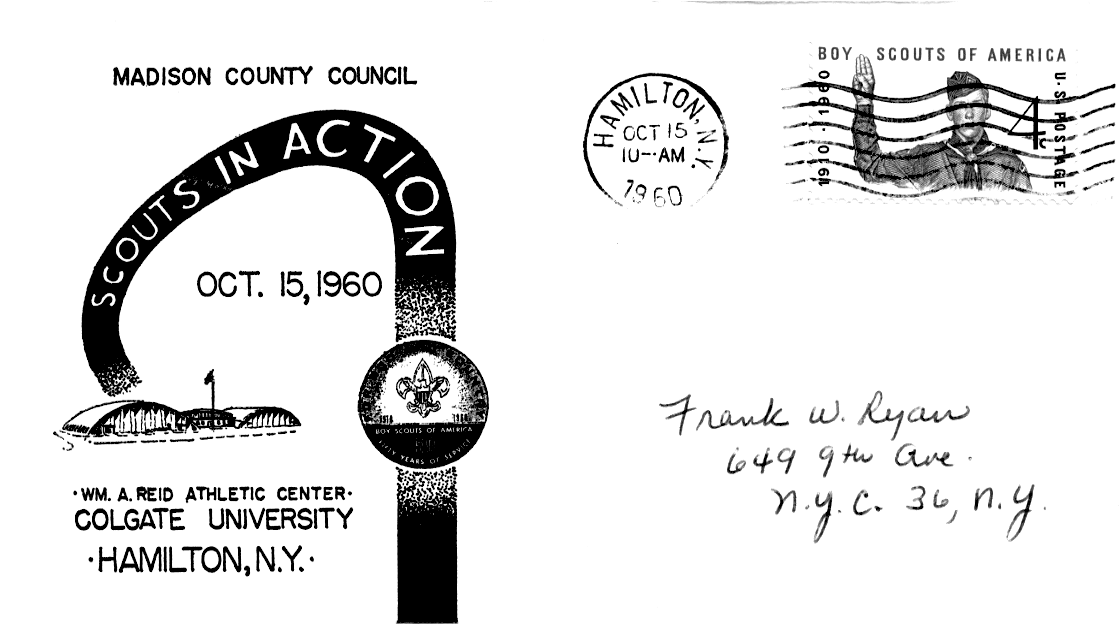 MADISON COUNTY COUNCIL
SCOUTS IN ACTION
OCT. 15, 1960
1910 1960
BOY SCOUTS OF AMERICA
FIFTY YEARS OF SERVICE
·WM. A. REID ATHLETIC CENTER·
COLGATE UNIVERSITY
·HAMILTON, N.Y.·
HAMILTON, N.Y.
OCT 15
10--AM
1960
BOY SCOUTS OF AMERICA
1910 · 1960
U·S·POSTAGE
4¢
Frank W. Ryan
649 9th Ave.
N.Y.C. 36, N.Y.